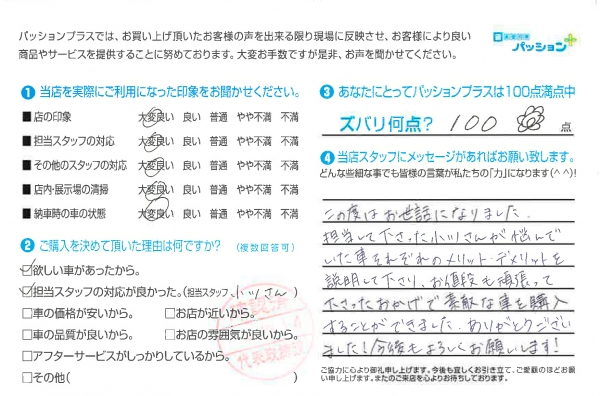 パッションプラスでは、お買い上げ頂いたお客様の声を出来る限り現場に反映させ、お客様により良い
商品やサービスを提供することに努めております。大変お手数ですが是非、お声を聞かせてください。
パッション
① 当店を実際にご利用になった印象をお聞かせください。
■ 店の印象 大変良い 良い 普通 やや不満 不満
■ 担当スタッフの対応 大変良い 良い 普通 やや不満 不満
■ その他のスタッフの対応 大変良い 良い 普通 やや不満 不満
■ 店内・展示場の清掃 大変良い 良い 普通 やや不満 不満
■ 納車時の車の状態 大変良い 良い 普通 やや不満 不満
② ご購入を決めて頂いた理由は何ですか? (複数回答可)
☑欲しい車があったから。
☑担当スタッフの対応が良かった。(担当スタッフ、小ツさん)
□車の価格が安いから。 □お店が近いから。
□車の品質が良いから。 □お店の雰囲気が良いから。
□アフターサービスがしっかりしているから。
□その他( )
③ あなたにとってパッションプラスは100点満点中
ズバリ何点? 100 点
④ 当店スタッフにメッセージがあればお願い致します。
どんな些細な事でも皆様の言葉が私たちの「力」になります(^ ^)!
この度はお世話になりました。
担当して下さった小ツさんが悩んで
いた車それぞれのメリット・デメリットを
説明して下さり、お値段も頑張って
下さったおかげで素敵な車を購入
することができました。ありがとうござい
ました!今後もよろしくお願いします!
ご協力に心より御礼申し上げます。今後も宜しくお引き立て、ご愛顧のほどお願
い申し上げます。またのご来店を心よりお待ちしております。